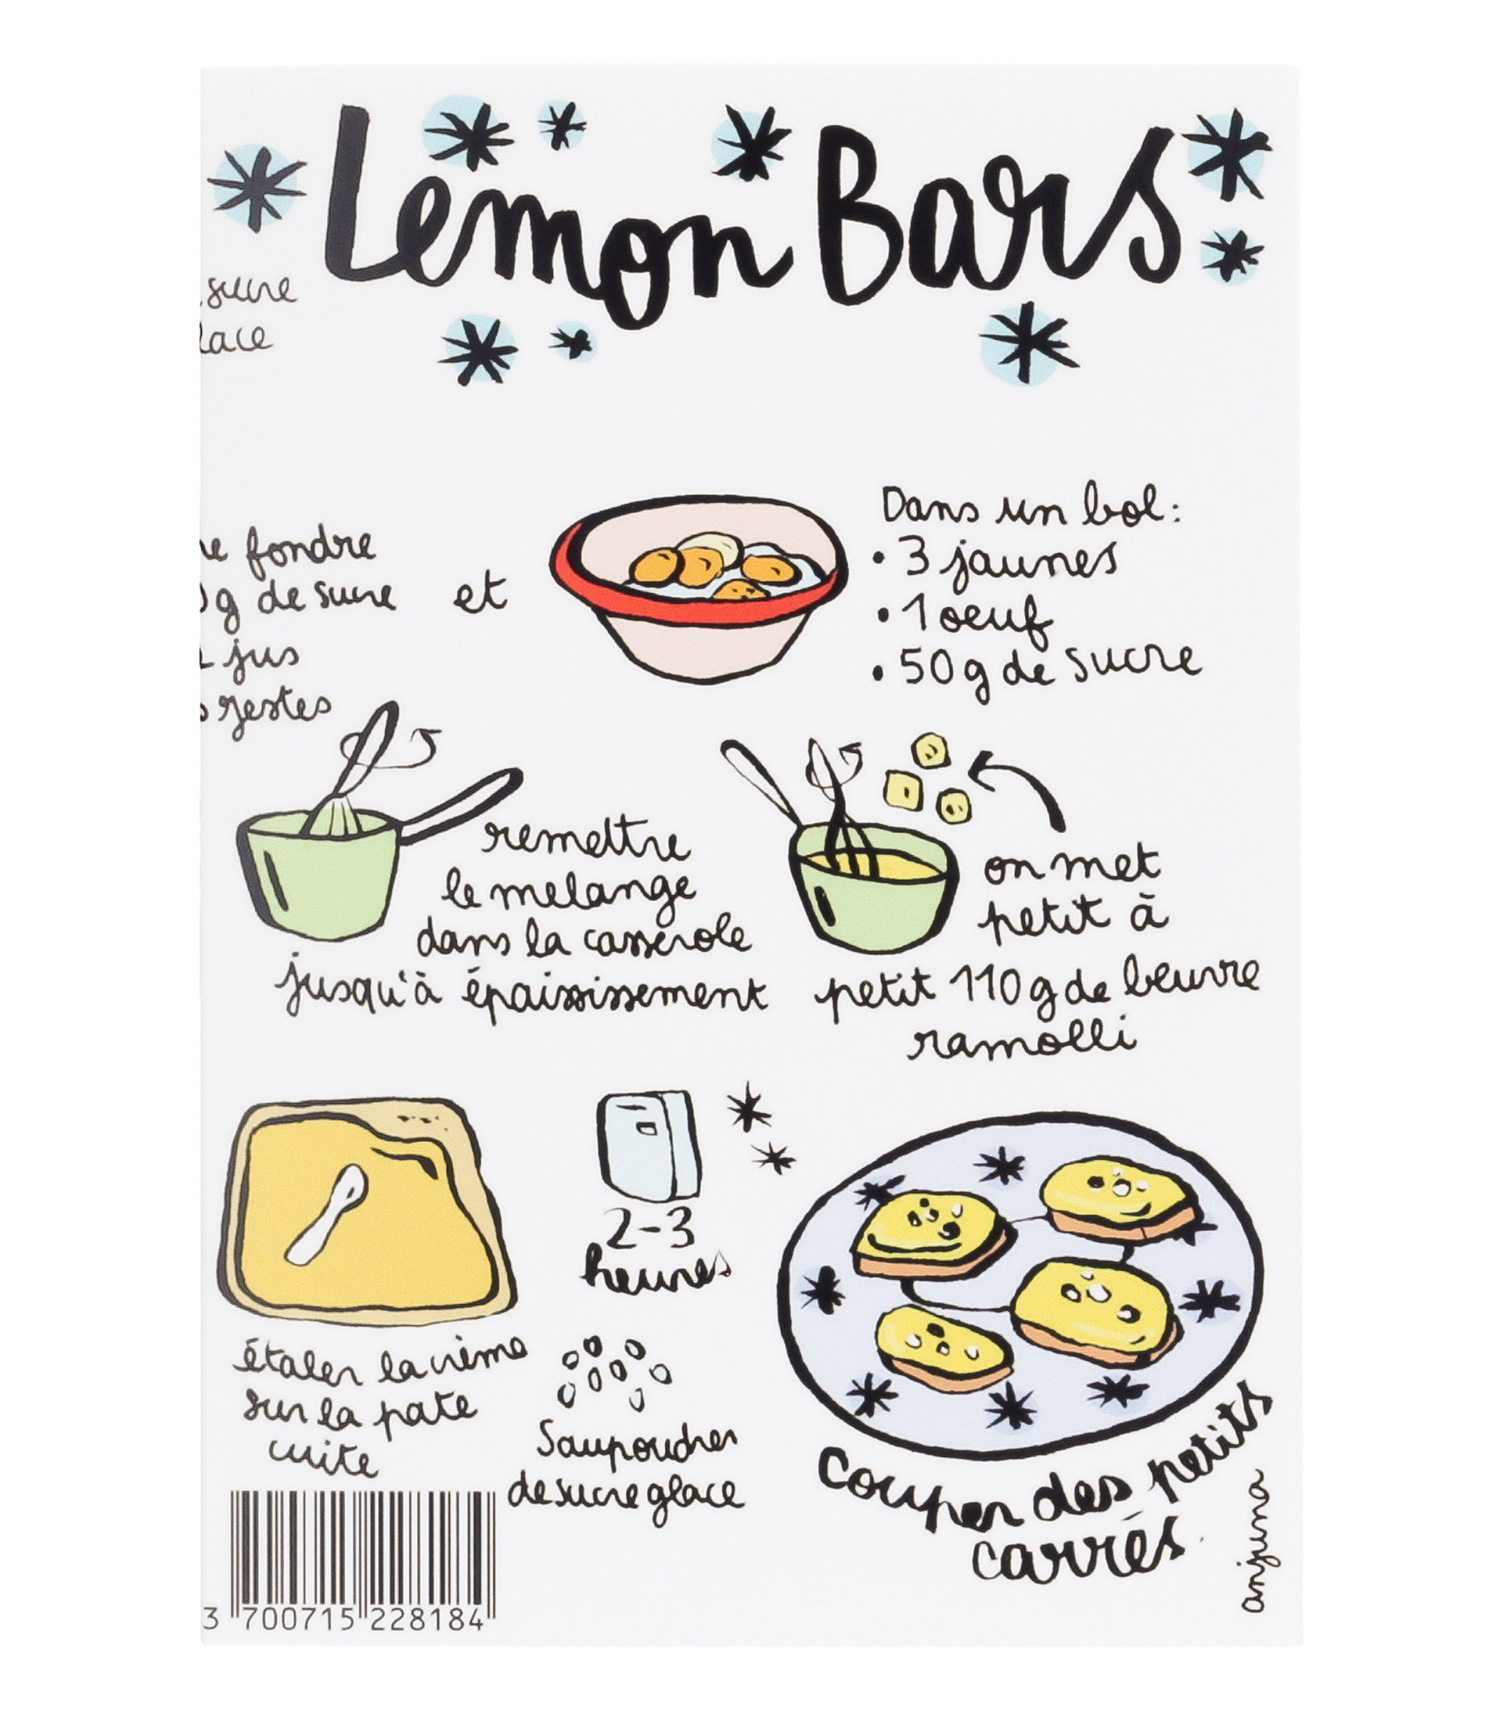 Lemon Bars
sucre
lace
re fondre
g de sucre
jus
zestes
et
Dans un bol:
• 3 jaunes
• 1 oeuf
• 50g de sucre
remettre
le melange
dans la casserole
jusqu'à épaississement
on met
petit à
petit 110g de beuvre
ramolli
étaler la crème
sur la pate
cuite
2-3
heures
Saupoudrer
de sucre glace
couper des petits
carrés
anjuna
3 700715 228184